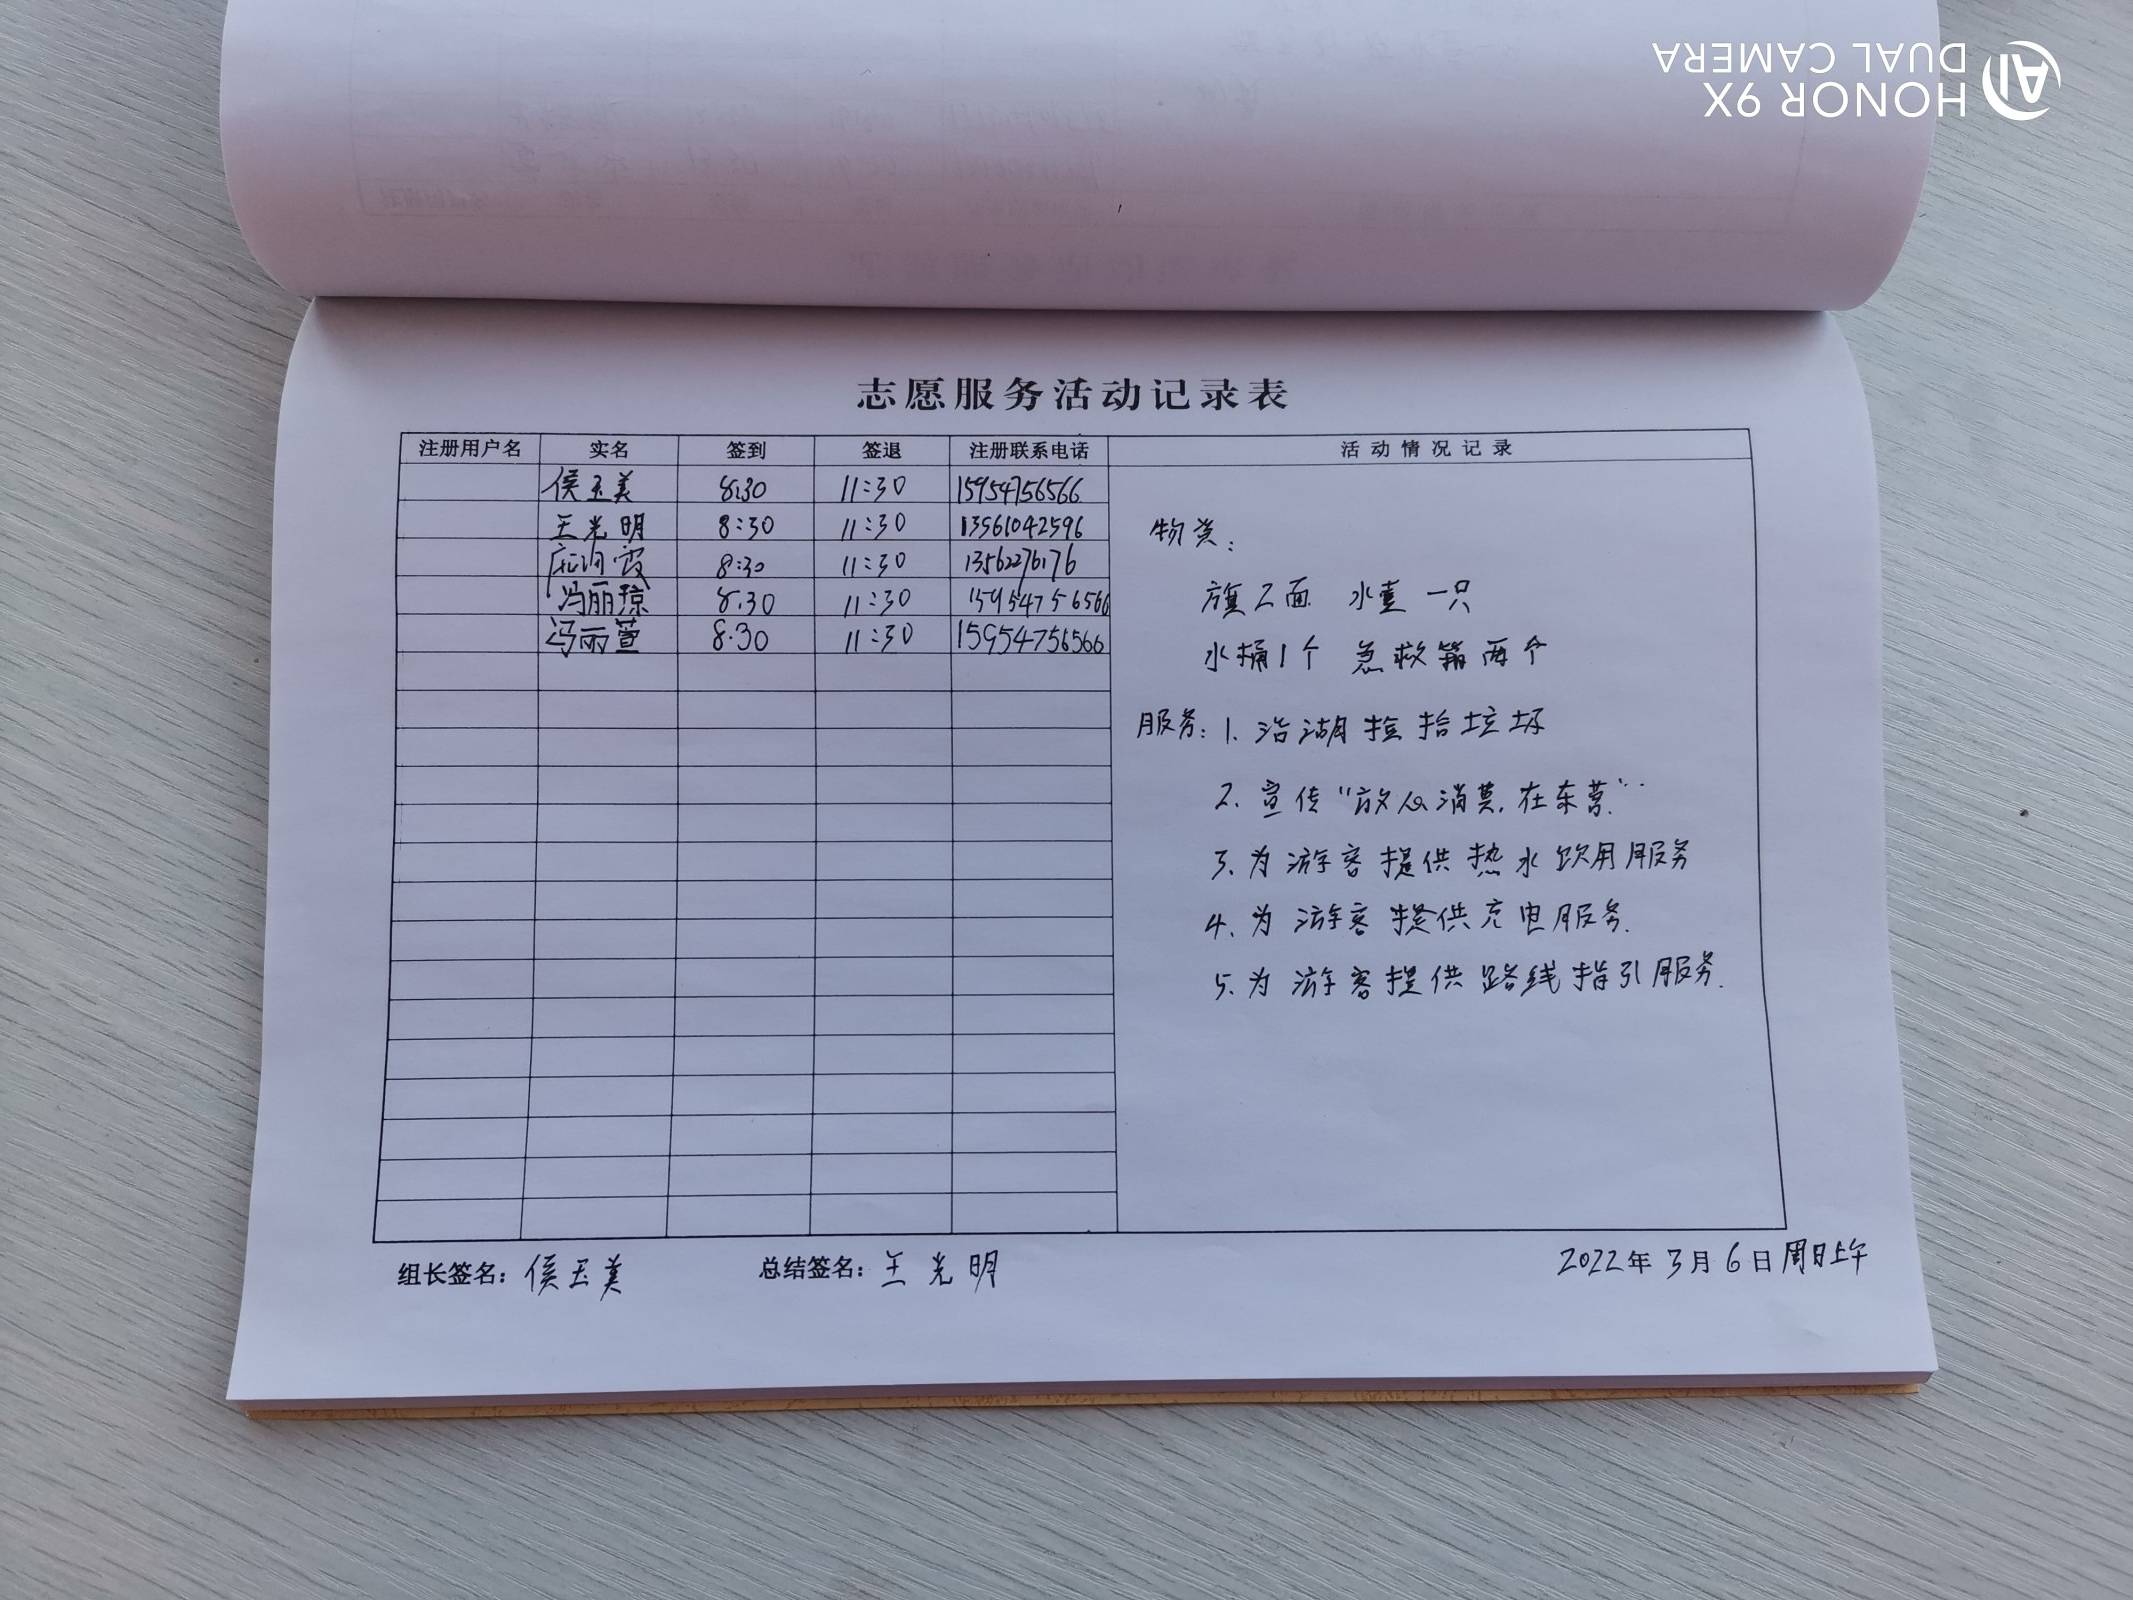 HONOR 9X
DUAL CAMERA
志愿服务活动记录表
注册用户名 实名 签到 签退 注册联系电话 活动情况记录
侯玉美 8:30 11:30 15954756566
王光明 8:30 11:30 13561042596
润霞 8:30 11:30 13562276176
冯丽琼 8.30 11:30 15954756566
冯丽萱 8.30 11:30 15954756566
物资:
旗2面 水壶一只
水桶1个 急救箱两个
服务:1、沿湖捡拾垃圾
2、宣传“放心消费,在东营.”
3、为游客提供热水饮用服务
4、为游客提供充电服务.
5、为游客提供路线指引服务.
组长签名:侯玉美 总结签名:王光明 2022年3月6日周日上午